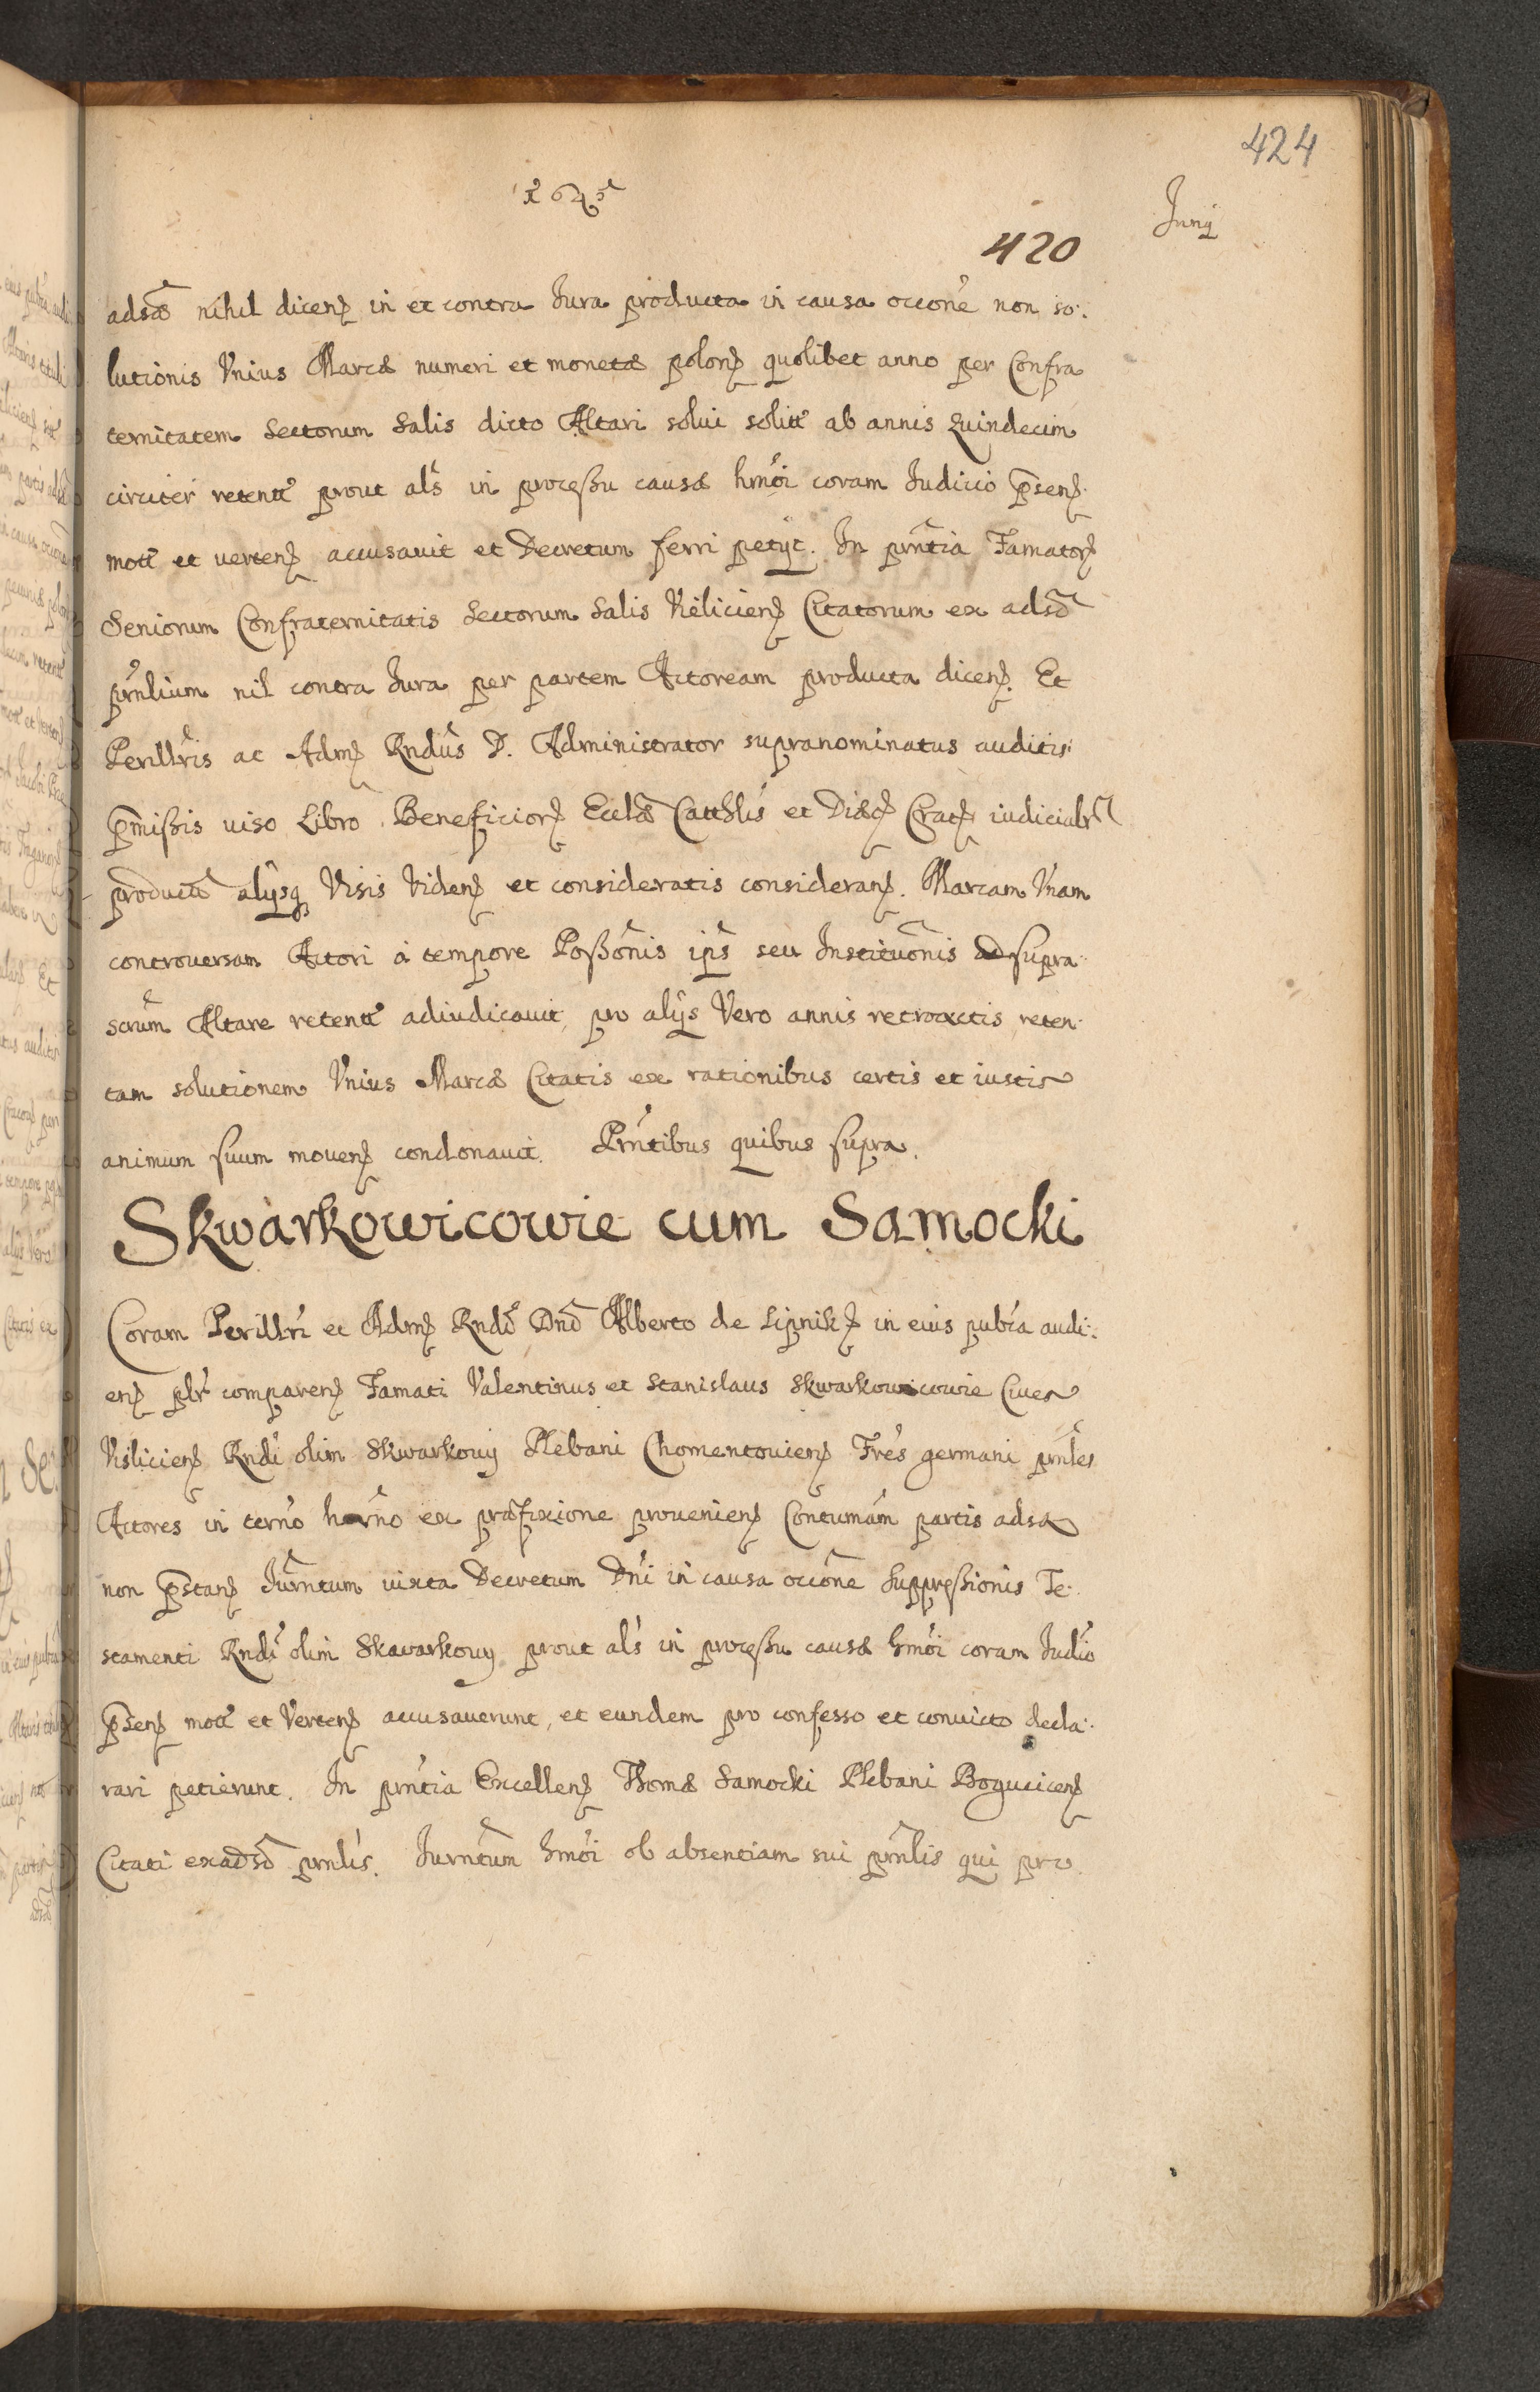 424
1645
Iunij
420
adsæ nihil dicenṣ in et contra Iura producta in causa occone non so:
lutionis Vnius Marcæ numeri et monetæ polonṣ quolibet anno per Confra
ternitatem Sectorum Salis dicto Altari solui solitt ab annis Quindecim
circiter retentt prout als in processu causæ hmoi coram Iudicio psenṣ
mott et uertenṣ accusauit et Decretum ferri petijt. In pntia Famatorṣ
Seniorum Confraternitatis Sectorum Salis Vieliciensṣ Citatorum ex adso
pnlium nil contra Iura per partem Actoream producta dicenṣ. Et
Perillris ac Admṣ Rndus D. Administrator supranominatus auditis
pmissis uiso Libro Beneficiorṣ Ecclæ Catthlis et Diæcṣ Cracṣ iudicialr
productt alijsq Visis Videnṣ et consideratis consideranṣ. Marcam Vnam
controuersam Actori à tempore Possonis ips seu Instituonis ad supra
scrum Altare retentt adiudicauit, pro alijs Vero annis retroactis reten
tam solutionem Vnius Marcæ Citatis ex rationibus certis et iustis
animum suum mouenṣ condonauit. Pntibus quibus supra.
Skwarkowicowie cum Samocki
Coram Perillri et Admṣ Rndo Dno Alberto de Lipnikṣ in eius pubca audi:
enṣ plr comparenṣ Famati Valentinus et Stanislaus Skwarkowicowie Ciues
Visliciensṣ Rndi olim Skwarkouij Plebani Chomentouiensṣ Fres germani pnles
Actores in terno horno ex præfixione proueniensṣ Contumam partis adsæ
non pstanṣ Iurntum iuxta Decretum Dni in causa occone Suppressionis Te
stamenti Rndi olim Skwarkouij prout als in processu causæ hmoi coram Iudio
psenṣ mott et Vertenṣ accusauerunt, et eundem pro confesso et conuicto decla:
rari petierunt. In pntia Excellenṣ Thomæ Samocki Plebani Bogucicenṣ
Citati exadso pnlis. Iurntum hmoi ob absentiam sui pnlis qui pro